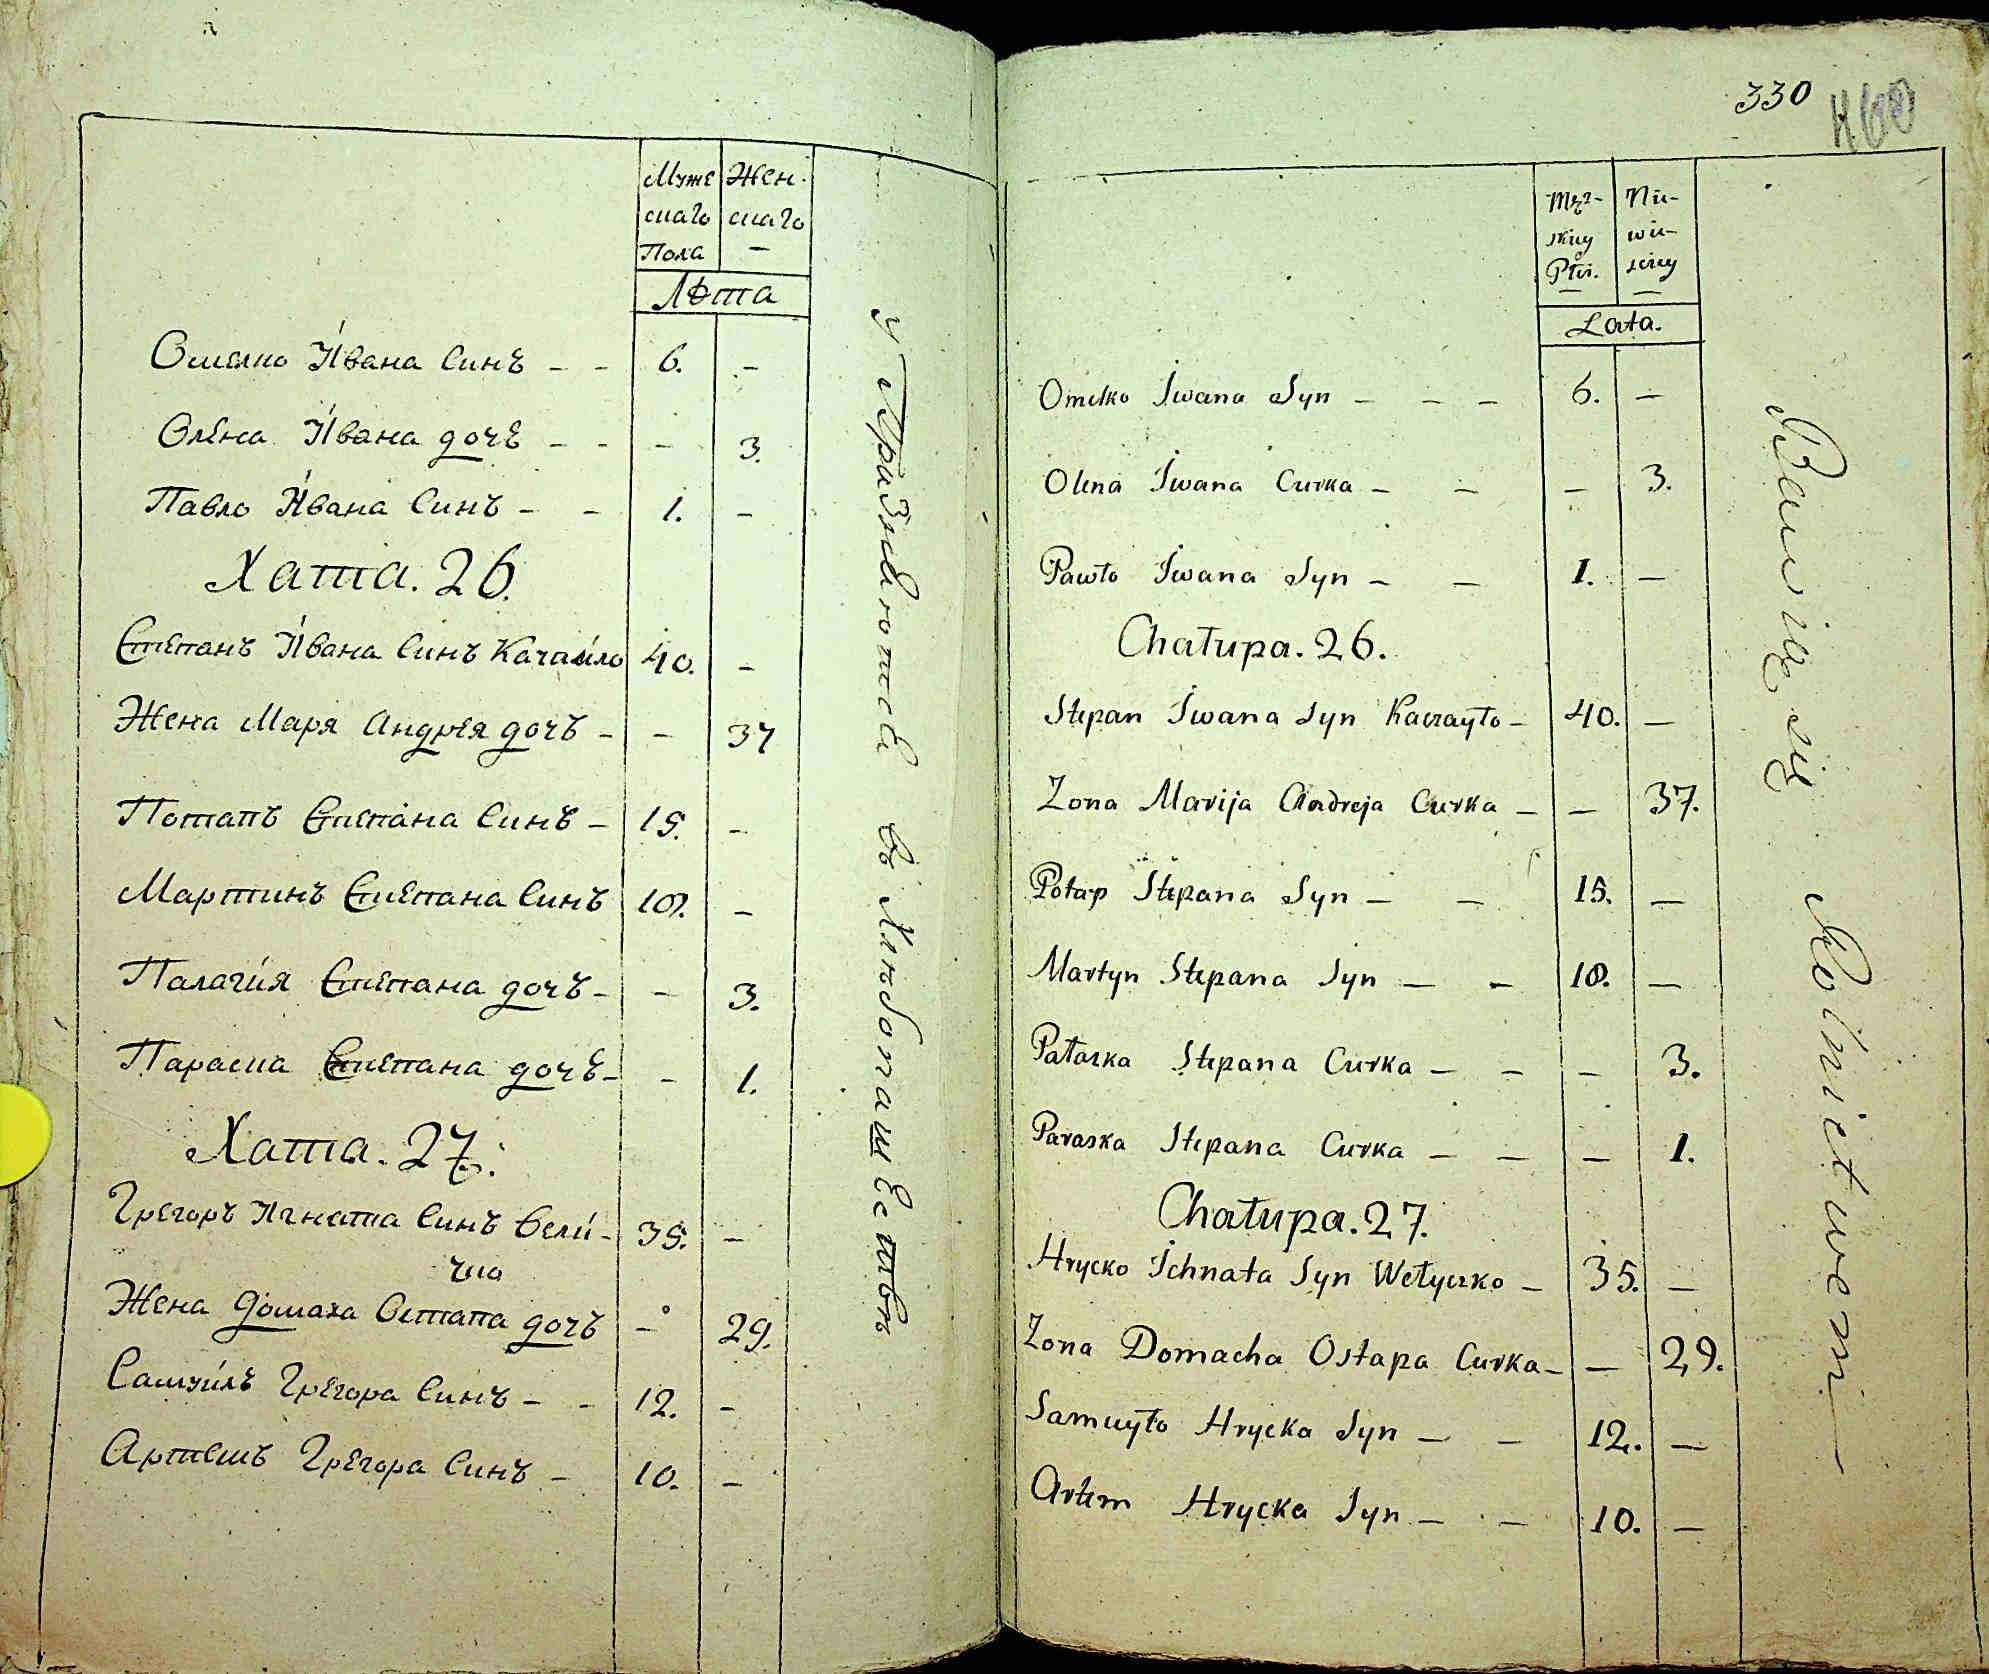 Муже Жен
скаго скаго
Пола —
Лѣта
Омелко Ивана Синъ - - 6. -
Олена Ивана дочъ - - - 3.
Павло Ивана Синъ - - 1. -
Хата. 26.
Степанъ Ивана Синъ Качайло 40. -
Жена Маря Андрея дочъ - - 37
Потапъ Степана Синъ - 15. -
Мартинъ Степана Синъ 10. -
Палагия Степана дочъ - - 3.
Параска Степана дочъ - - 1.
Хата. 27.
Грегоръ Игната Синъ Вели- 35. -
чко
Жена Домаха Остапа дочъ - 29.
Самуилъ Грегора Синъ - - 12. -
Артемъ Грегора Синъ - 10. -
Упражняются въ Хлѣбопашествѣ
330
Męz- Nie-
skiey wie-
Płci. sciey
Lata.
Omelko Iwana Syn - - - 6. -
Olena Iwana Curka - - - 3.
Pawło Iwana Syn - - 1. -
Chałupa. 26.
Stepan Iwana Syn Kaczayło - 40. -
Zona Marija Andreja Curka - - 37.
Potap Stepana Syn - - 15. -
Martyn Stepana Syn - - 10. -
Pałaszka Stepana Curka - - - 3.
Paraska Stepana Curka - - - 1.
Chałupa. 27.
Hrycko Ichnata Syn Wełyczko - 35. -
Zona Domacha Ostapa Curka - - 29.
Samuyło Hrycka Syn - - 12. -
Artem Hrycka Syn - - 10. -
Bawią się Rolnictwem